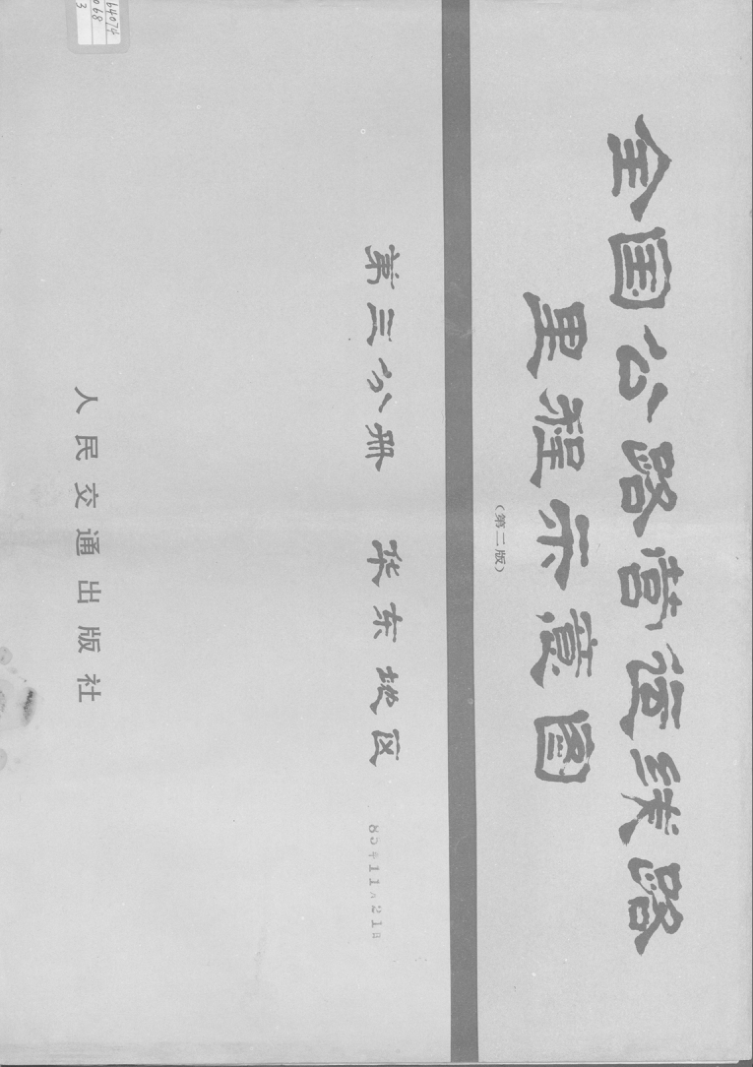 全国公路营运线路
里程示意图
（第二版）
第三分册 华东地区
85年11月21日
人民交通出版社